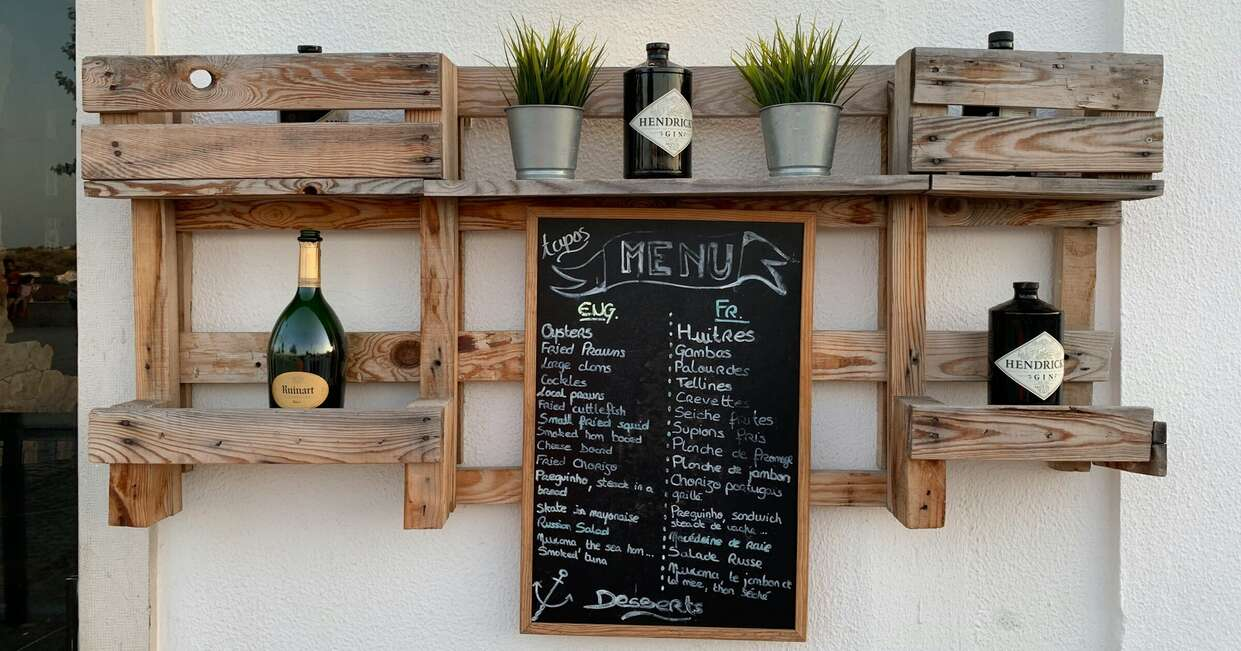 HENDRICK'S
GIN
tapas
MENU
ENG.
Oysters
Fried Prawns
Large clams
Cockles
Local prawns
Fried cuttlefish
Small fried squid
Smoked ham board
Cheese board
Fried Chorizo
Preguinho, steack in a
bread
Skate in mayonaise
Russian Salad
Muxama the sea ham...
Smoked tuna
Fr.
Huitres
Gambas
Palourdes
Tellines
Crevettes
Seiche frites
Supions fris
Planche de fromage
Planche de jambon
Chorizo portugais
grillé
Preguinho, sandwich
steack de vache...
de raie
Salade Russe
Muxama, le jambon de
la mer, thon séché
Desserts
Ruinart
HENDRICK'S
GIN